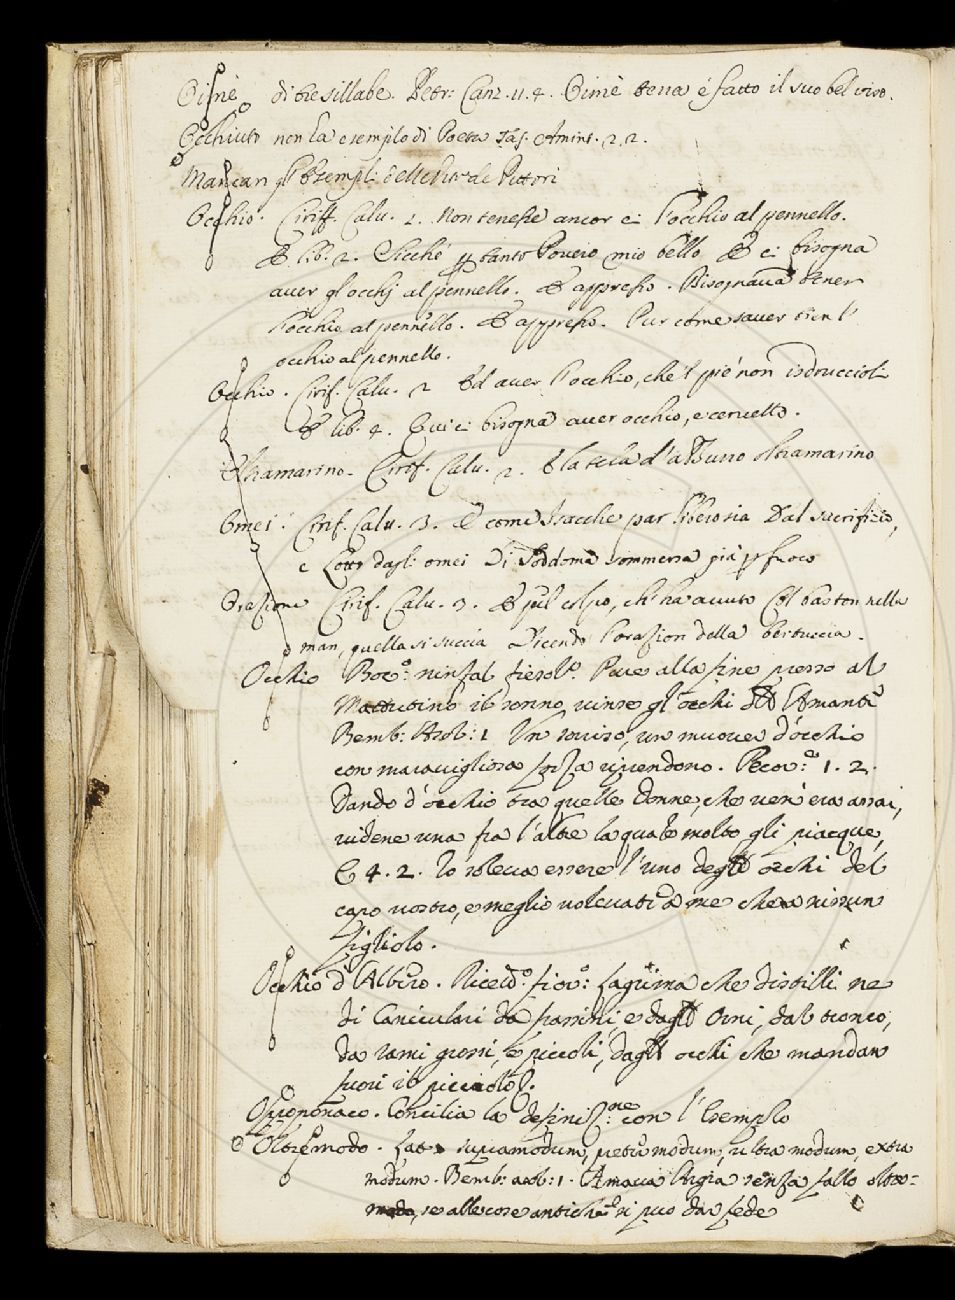 Oimè di tre sillabe. Petr: Canz. 11. 4. Oimè terra é fatto il suo bel viso.
Occhiuto non ha esemplo di Poeta Tas. Amint. 2. 2.
Mancan gl' Esempli delle Vite de Pittori
Occhio. Ciriff. Calv. 1. Non tenesse ancor ei l'occhio al pennello.
E lib. 2. Sicché per tanto Povero mio bello E ci bisogna
aver gl'occhj al pennello. E appresso. Bisognava tener
l'occhio al pennello. E appresso. Pur come saver tien l'
occhio al pennello.
Occhio. Cirif. Calv. 2 Ed aver l'occhio, che 'l piè non isdruccioli
E lib. 4. Qui ci bisogna aver occhio, e cervello.
Oltramarino. Cirif. Calv. 2. E la tela d'azzurro oltramarino
Omei. Cirif. Calv. 3. E come Isacche par liberò sia Dal sacrifizio,
e Lotto dagli omei Di Soddoma sommersa già per fuoco
Orazione Cirif. Calv. 3. E pel colpo, ch' ha avuto Col baston nella
man, quella si succia Dicendo l'orazion della bertuccia.
Occhio Boc.º ninfal fiesol.º Pure alla fine presso al
Mattutino il sonno vinse gl'occhi dell' Amante
Bemb: Asol: 1 Un sorriso, un muover d'occhio
con maravigliosa forza ci prendono. Pecor.e 1. 2.
Dando d'occhio tra quelle donne, che ven'era assai,
videne una fra l'altre la quale molto gli piacque,
E 4. 2. Io soleva essere l'uno degli occhi del
capo vostro, e meglio voluta da me che a nissun
figliolo.
Occhio d'Albero. Ricett.º fior.º: Lagrima che distilli ne
di Caniculari da frassini, e dagli Orni, dal tronco,
da rami grossi, e piccoli, dagli occhi che mandan
fuori il picciolo.
Opoponaco. Concilia la definiz.ne con l'Esemplo
Oltremodo. Lat. supramodum, praeter modum, ultra modum, extra
modum. Bemb: asol: 1. Amava Argia senza fallo oltre=
modo, se alle cose antiche si può dar fede